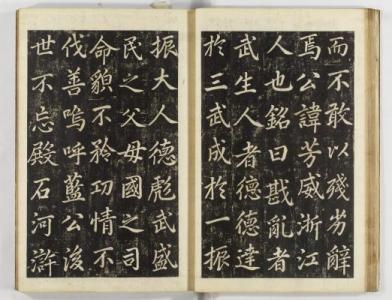 而不敢以殘劣辭
焉公諱芳威浙江
人也銘曰戡亂者
武生人者德德達
於三武成於一振
振大人德彪武盛
民之父母國之司
命貌不矜功情不
伐善嗚呼藍公後
世不忘殿石河滸